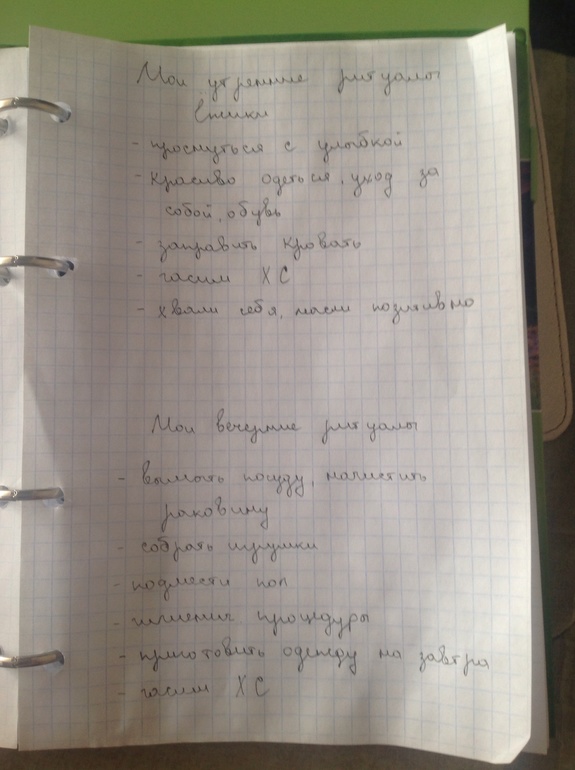 Мои утренние ритуалы
- проснуться с улыбкой
- красиво одеться, уход за
собой, обувь
- заправить кровать
- гасим ХС
- хвали себя, мысли позитивно
Мои вечерние ритуалы
- вымыть посуду, начистить
раковину
- собрать игрушки
- подмести пол
- гигиенич процедуры
- приготовить одежду на завтра
- гасим ХС